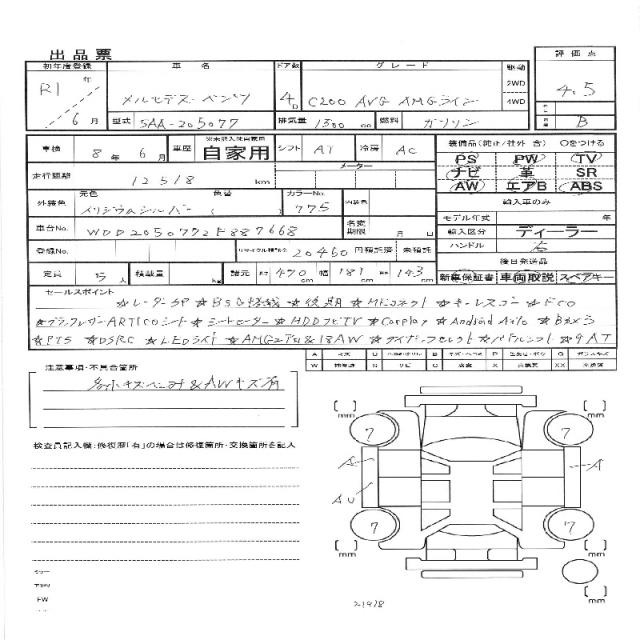 出品票
初年度登録 車名 ドア数 グレード 駆動 評価点
R1 年 6月 メルセデス・ベンツ 4D C200 AVG AMGライン 2WD 4WD 4.5
型式 5AA-205077 排気量 1500 cc 燃料 ガソリン B
車検 8年 6月 車歴 自家用 シフト AT 冷房 AC
装備品(純正/社外 含) Oをつける
PS PW TV
ナビ 革 SR
AW エアB ABS
走行距離 12518 km メーター
輸入車のみ
外装色 元色 イリジウムシルバー 色替 ( ) カラーNo. 775 内装色
モデル年式 年
車台No. WDD2050772F887668 名変期限 月 日
輸入区分 ディーラー
ハンドル 右
登録No. リサイクル預託金 20460 円預託済 未預託
後日発送品
定員 5人 積載量 kg 諸元 長さ 470 cm 幅 181 cm 高さ 143 cm
新車保証書 車両取説 スペアキー
セールスポイント
★レーダーSP ★BSG搭載 ★後期 ★MBコネクト ★キーレスゴー ★DCO
★ブラックレザーARTICOシート ★シートヒーター ★HDDナビTV ★Carplay ★Android Auto ★Bカメラ
★PTS ★DSRC ★LEDライト ★AMGエアロ&18AW ★ダイナミックセレクト ★パドルシフト ★9AT
注意事項・不具合箇所
各小キズ・ヘコミ&AWキズ有
検査員記入欄:修復歴「有」の場合は修復箇所・交換箇所を記入
[ ]mm [ ]mm
7 7
A A
AU
7 7
[ ]mm [ ]mm
[ ]mm
FW
21918